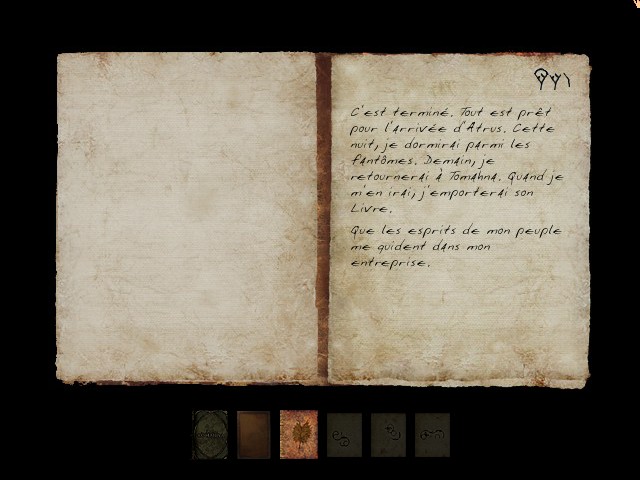 C'est terminé. Tout est prêt
pour l'arrivée d'Atrus. Cette
nuit, je dormirai parmi les
fantômes. Demain, je
retournerai à Tomahna. Quand je
m'en irai, j'emporterai son
Livre.
Que les esprits de mon peuple
me guident dans mon
entreprise.